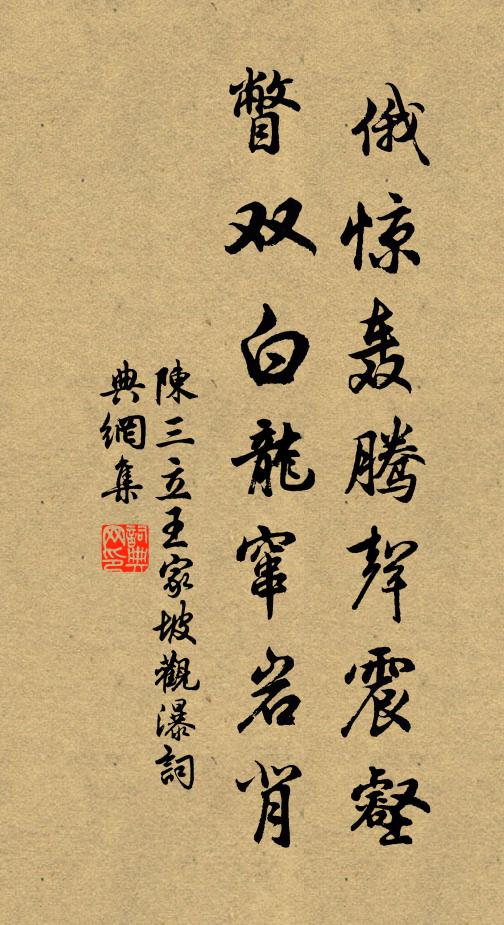 俄惊轰腾聲震壑
瞥双白龍窜岩背
陳三立王家坡觀瀑詞
典網集
詞典网印